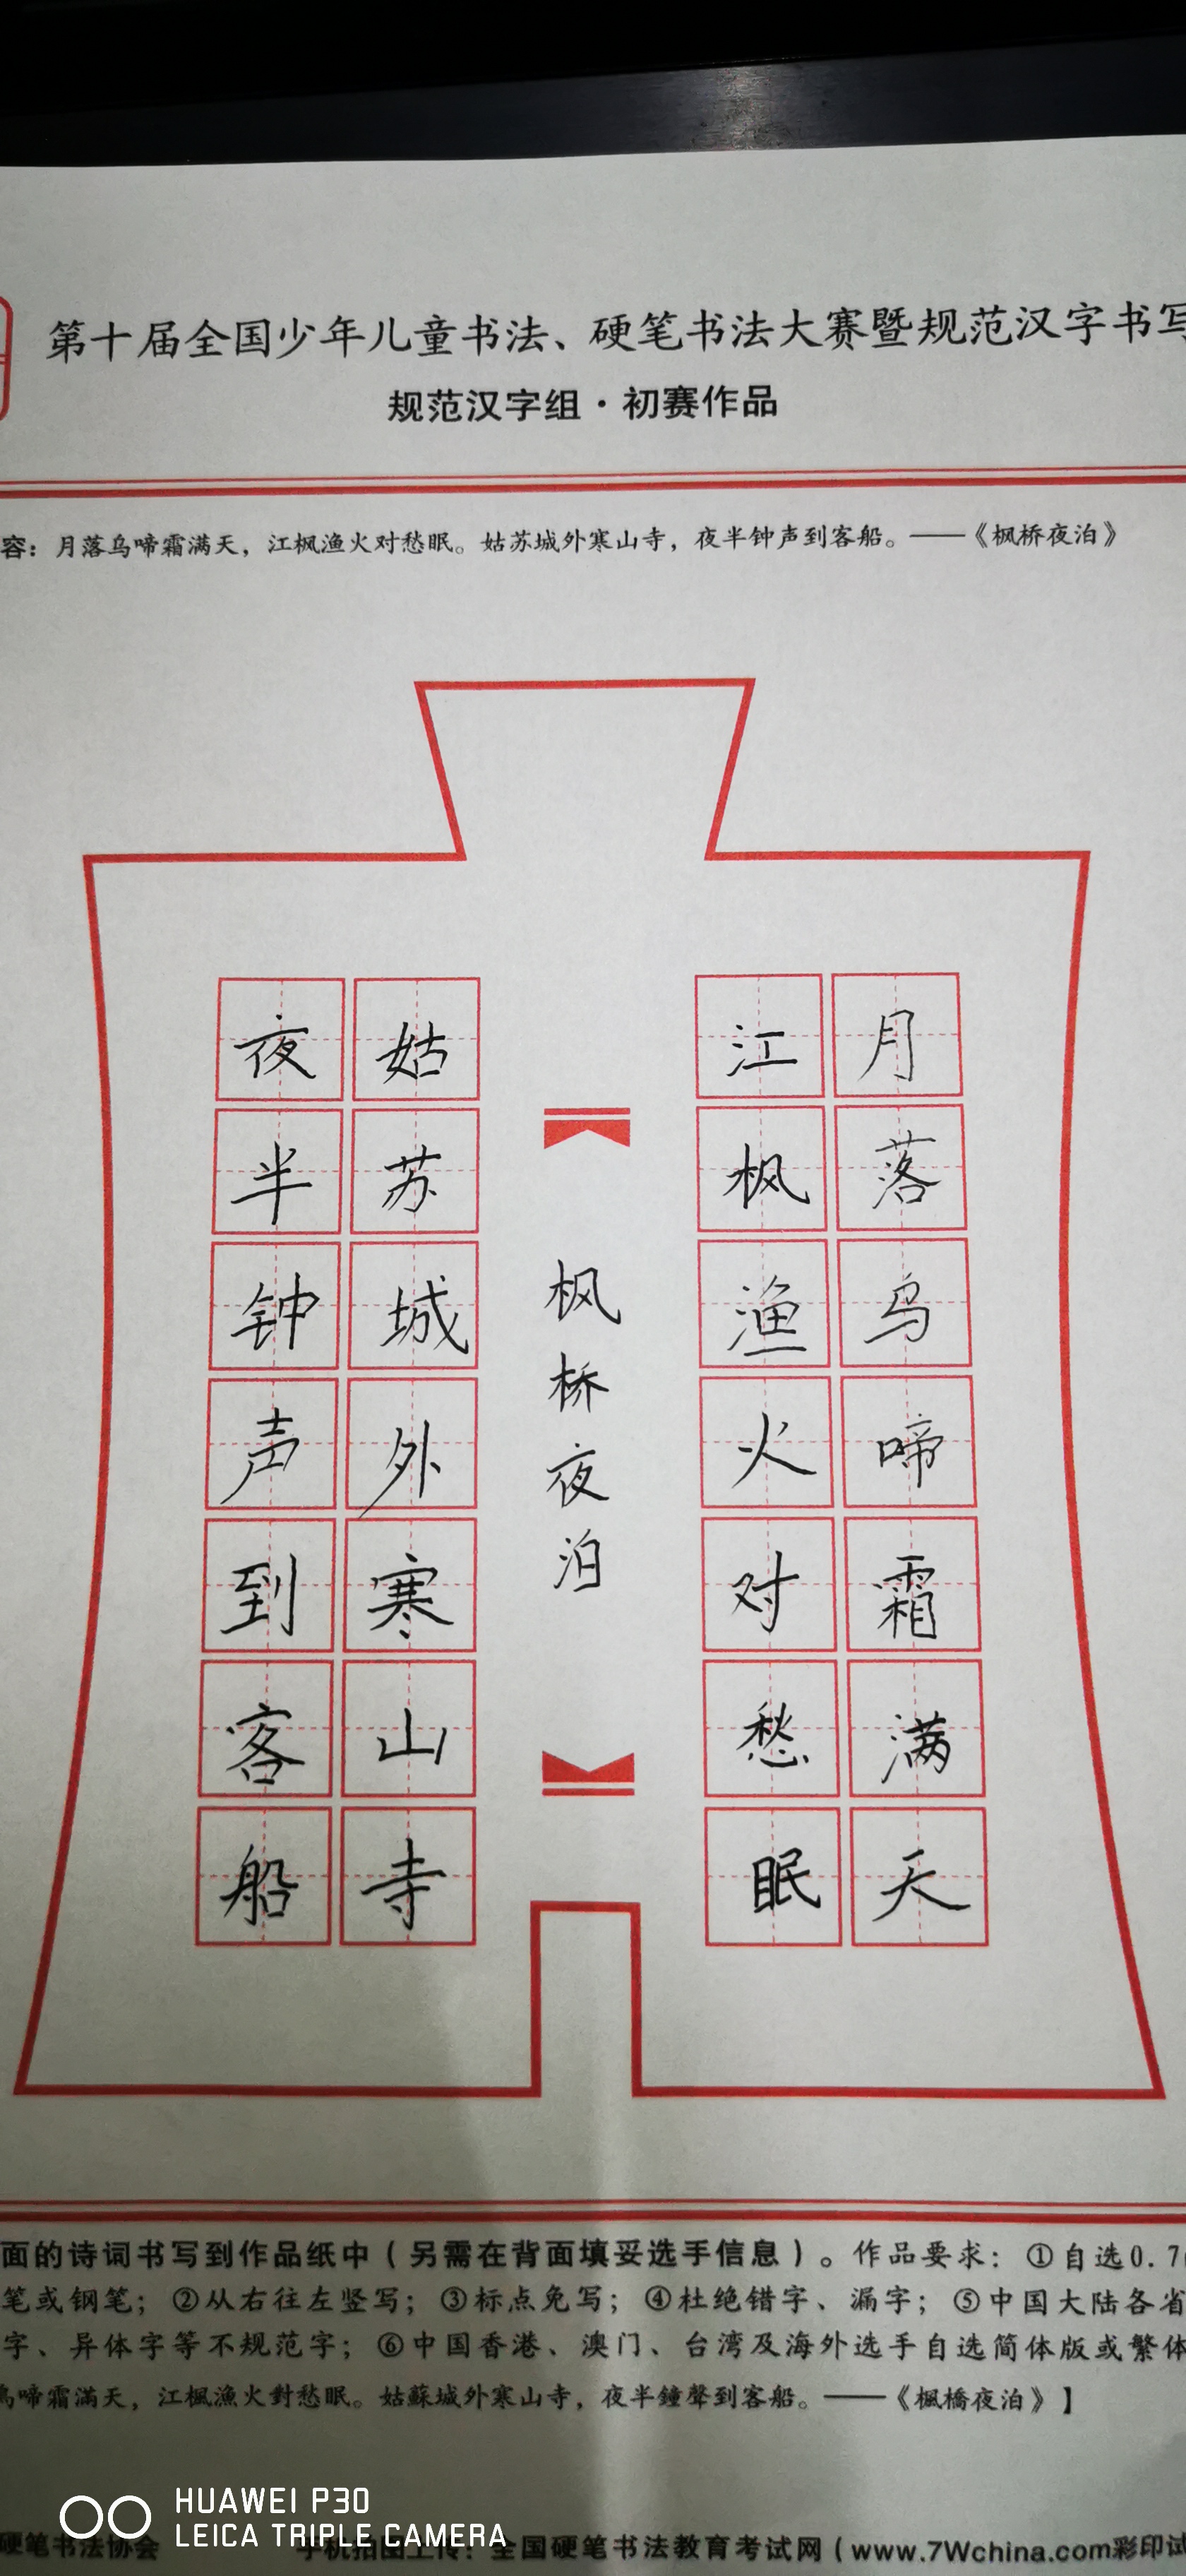 第十届全国少年儿童书法、硬笔书法大赛暨规范汉字书写
规范汉字组·初赛作品
容：月落乌啼霜满天，江枫渔火对愁眠。姑苏城外寒山寺，夜半钟声到客船。——《枫桥夜泊》
月落乌啼霜满天
江枫渔火对愁眠
枫桥夜泊
姑苏城外寒山寺
夜半钟声到客船
面的诗词书写到作品纸中（另需在背面填妥选手信息）。作品要求：①自选0.7
笔或钢笔；②从右往左竖写；③标点免写；④杜绝错字、漏字；⑤中国大陆各省
字、异体字等不规范字；⑥中国香港、澳门、台湾及海外选手自选简体版或繁体
烏啼霜滿天，江楓漁火對愁眠。姑蘇城外寒山寺，夜半鐘聲到客船。——《楓橋夜泊》】
HUAWEI P30
LEICA TRIPLE CAMERA
硬笔书法协会 手机拍图上传：全国硬笔书法教育考试网（www.7Wchina.com彩印试